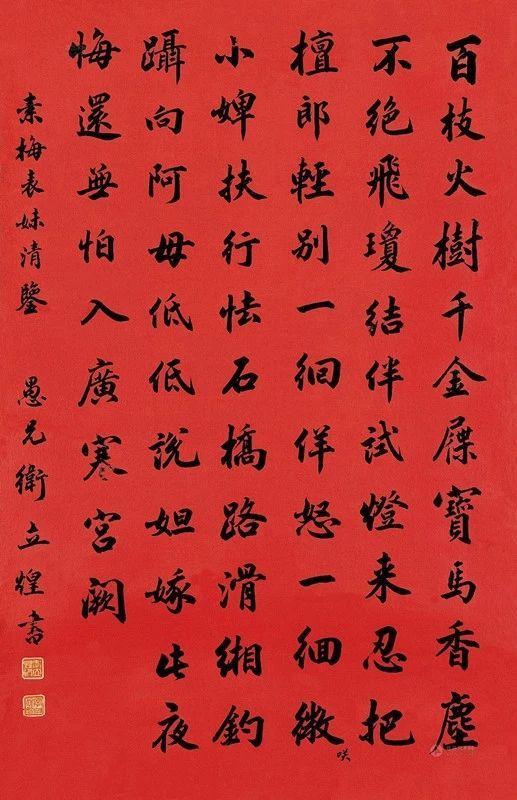 百枝火樹千金屧寶馬香塵
不絕飛瓊結伴試燈来忍把
檀郎輕別一徊佯怒一徊微咲
小婢扶行怯石橋路滑緗釣
躡向阿母低低說妲娥此夜
悔還無怕入廣寒宮闕
素梅表妹清鑒 愚兄衛立煌書